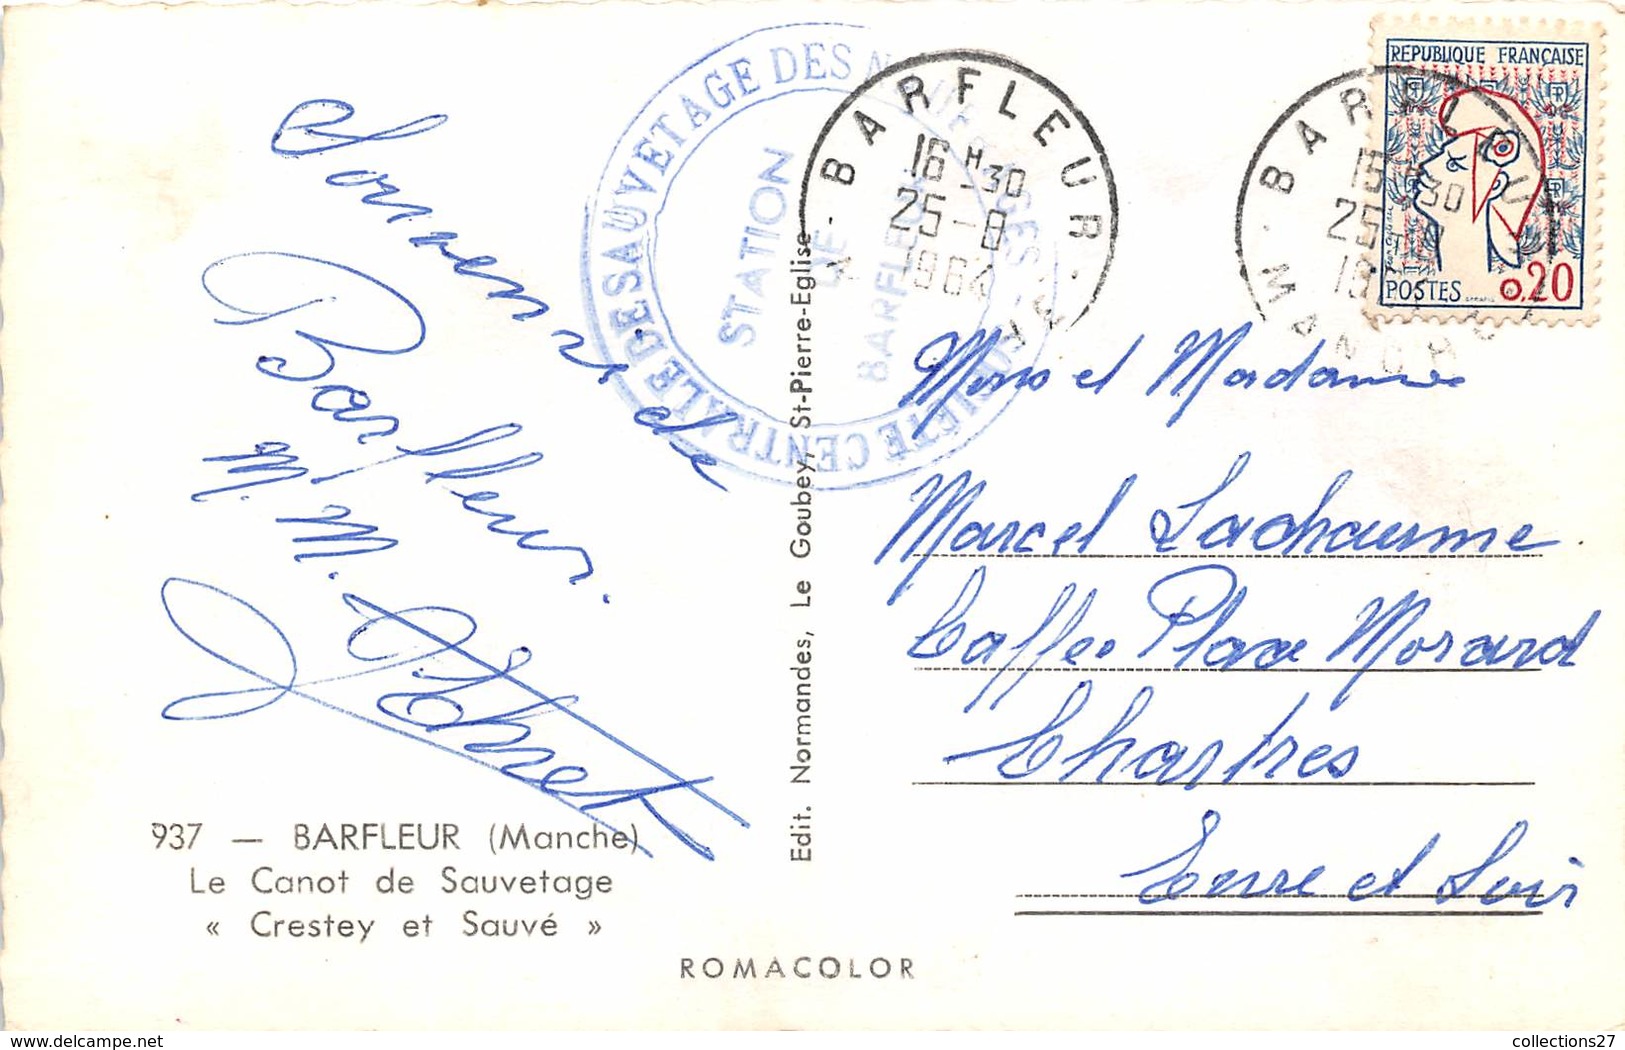 Souvenir de
Barfleur.
M. M.
937 — BARFLEUR (Manche)
Le Canot de Sauvetage
« Crestey et Sauvé »
ROMACOLOR
Edit. Normandes, Le Goubey, St-Pierre-Eglise
SOCIETE CENTRALE DE SAUVETAGE DES NAUFRAGES
STATION
DE
BARFLEUR
BARFLEUR
16 H 30
25-8
1964
MANCHE
BARFLEUR
16 H 30
25-8
19
MANCHE
REPUBLIQUE FRANÇAISE
POSTES 0,20
Mons et Madame
Marcel Lachaume.
Caffee Place Morard
Chartres
Eure et Loir
www.delcampe.net
collections27